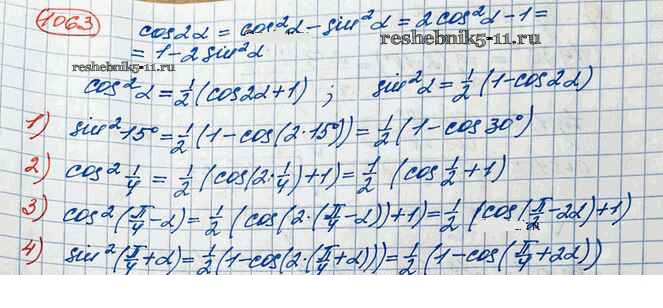 1063 cos2α = cos²α - sin²α = 2cos²α - 1 =
= 1 - 2sin²α
reshebnik5-11.ru
reshebnik5-11.ru
cos²α = 1/2 (cos2α + 1) ; sin²α = 1/2 (1 - cos2α)
1) sin²15° = 1/2 (1 - cos(2·15°)) = 1/2 (1 - cos30°)
2) cos² 1/4 = 1/2 (cos(2·1/4) + 1) = 1/2 (cos 1/2 + 1)
3) cos²(π/4 - α) = 1/2 (cos(2·(π/4 - α)) + 1) = 1/2 (cos(π/2 - 2α) + 1)
4) sin²(π/4 + α) = 1/2 (1 - cos(2·(π/4 + α))) = 1/2 (1 - cos(π/4 + 2α))